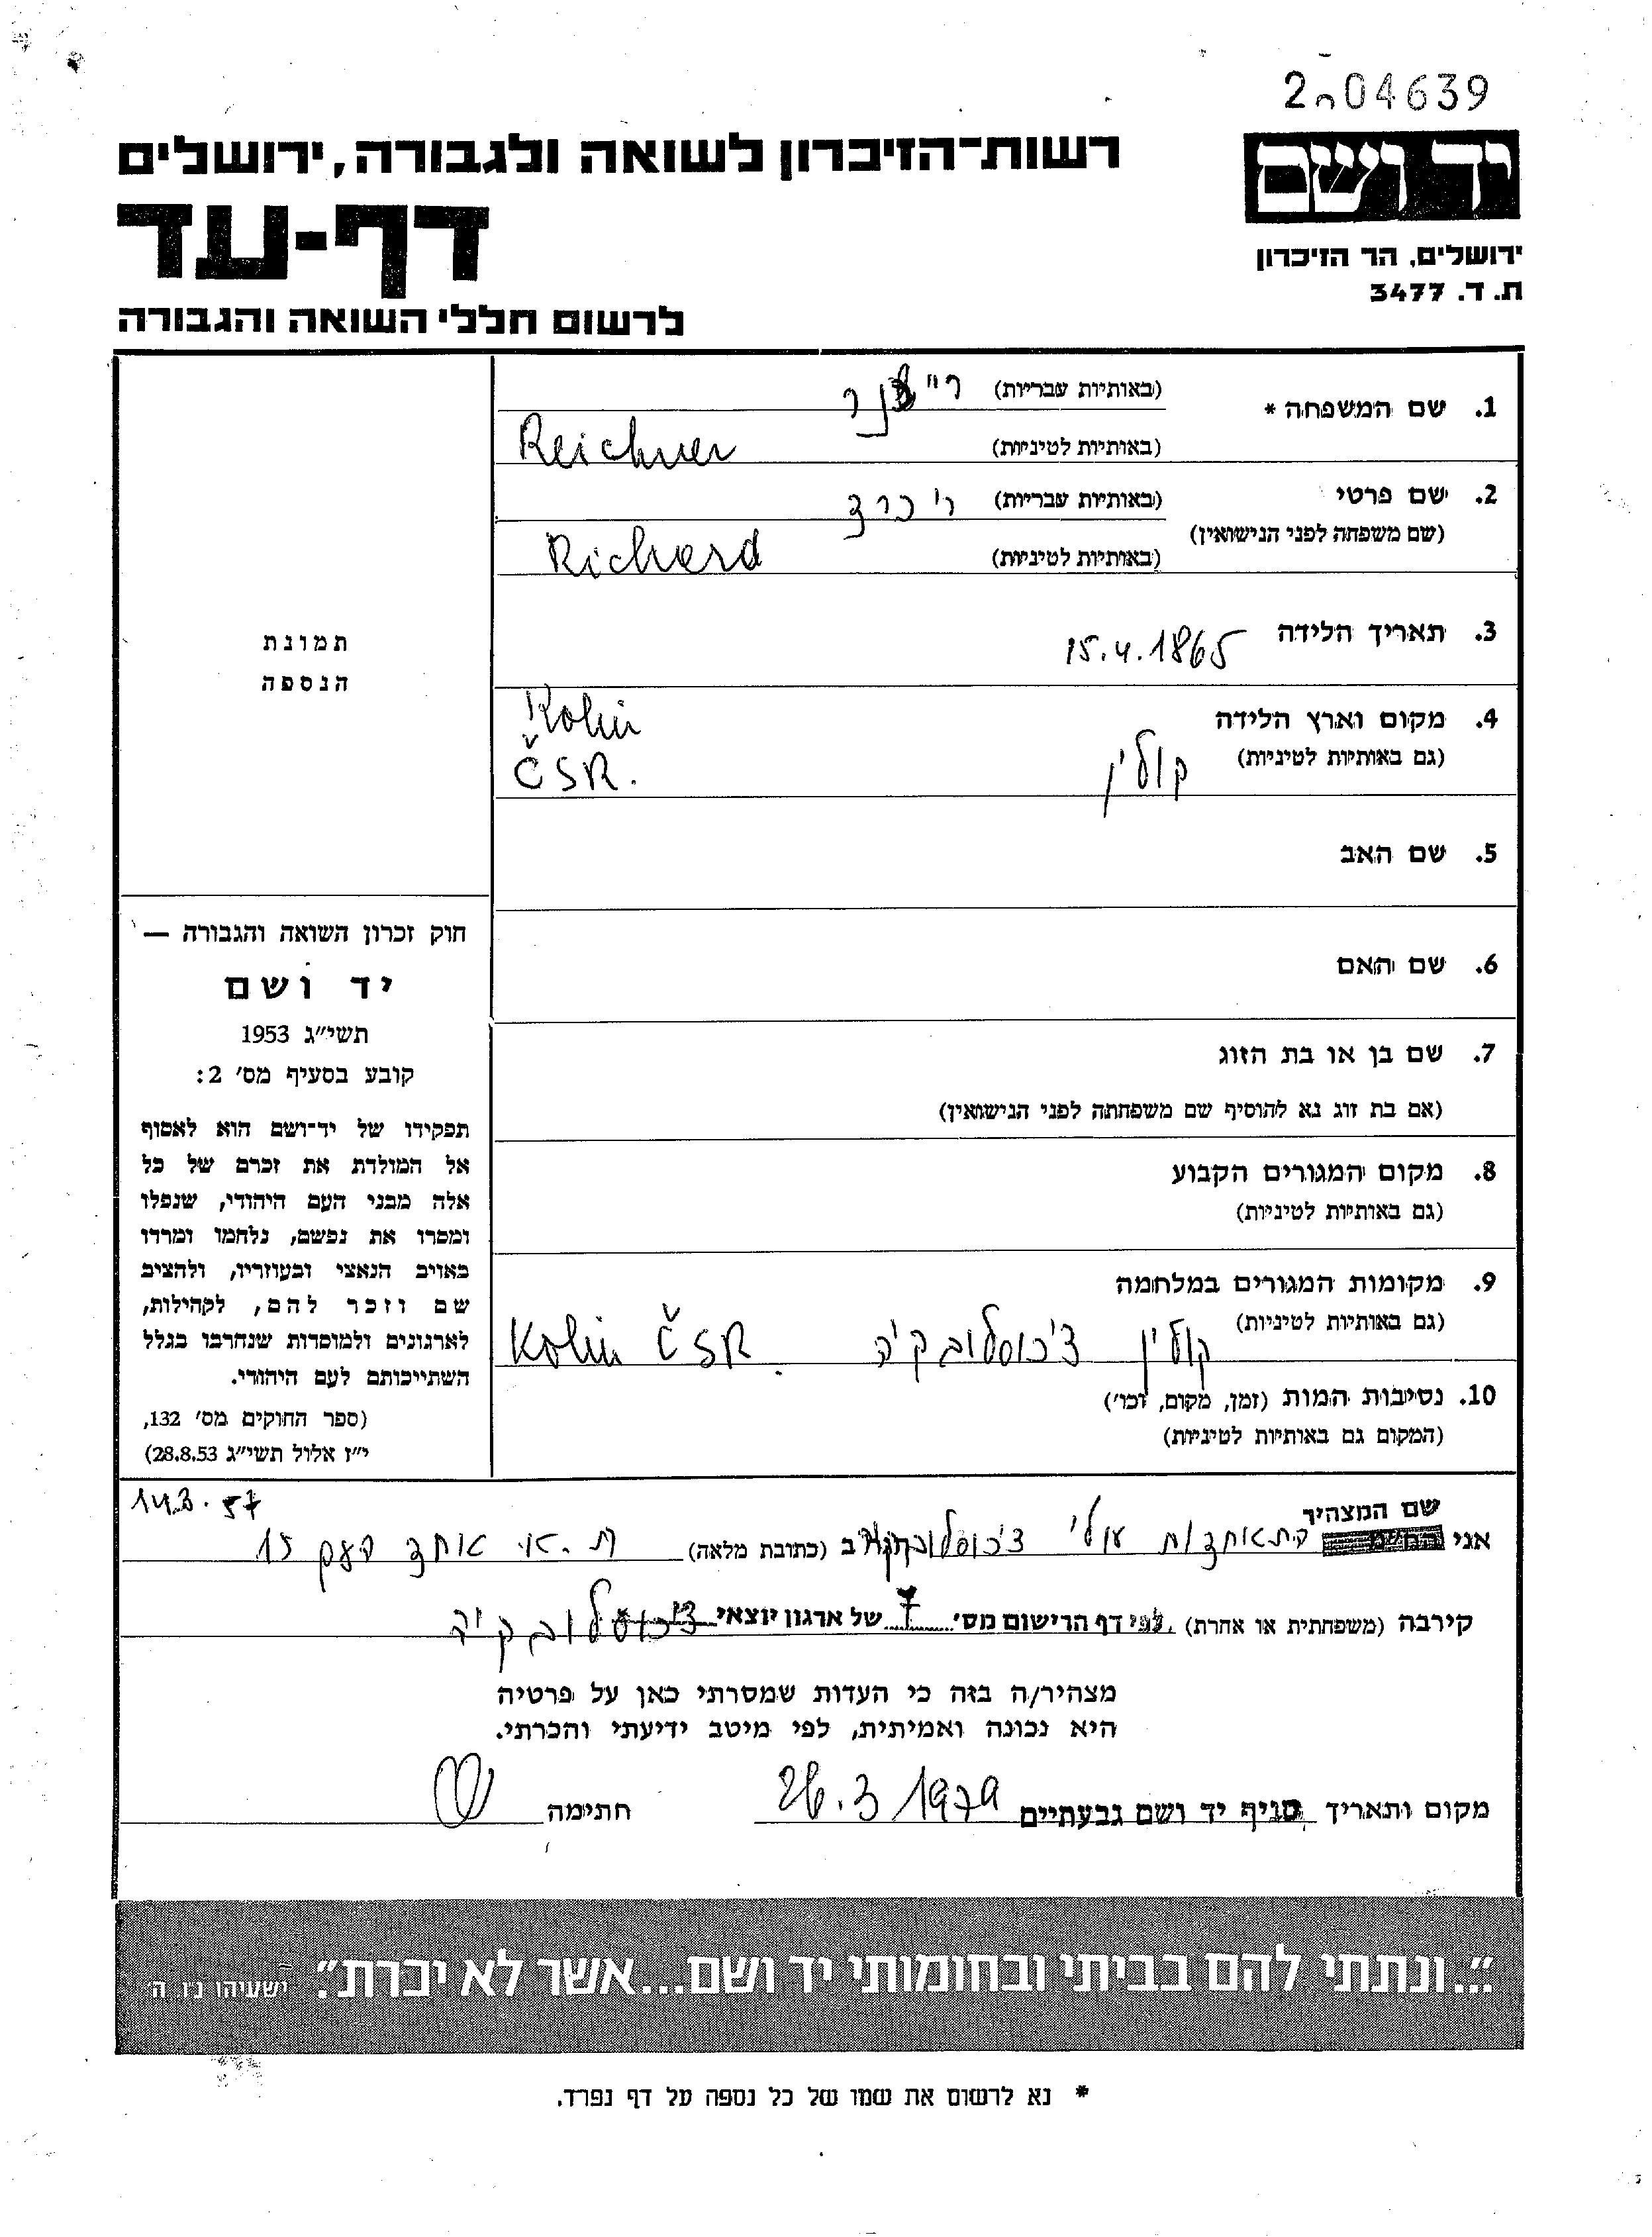 2004639
יד ושם
רשות־הזיכרון לשואה ולגבורה, ירושלים
דף-עד
ירושלים, הר הזיכרון
ת. ד. 3477
לרשום חללי השואה והגבורה
1. שם המשפחה *
(באותיות עבריות)
(באותיות לטיניות) Reichner
2. שם פרטי (באותיות עבריות) ריכרד
(שם משפחה לפני הנישואין)
(באותיות לטיניות) Richard
3. תאריך הלידה 15.4.1865
4. מקום וארץ הלידה Kolin
(גם באותיות לטיניות) קולין ČSR.
5. שם האב
6. שם האם
7. שם בן או בת הזוג
(אם בת זוג נא להוסיף שם משפחתה לפני הנישואין)
8. מקום המגורים הקבוע
(גם באותיות לטיניות)
9. מקומות המגורים במלחמה
(גם באותיות לטיניות) קולין צ'כוסלובקיה Kolin ČSR.
10. נסיבות המות (זמן, מקום, וכו')
(המקום גם באותיות לטיניות)
תמונת
הנספה
חוק זכרון השואה והגבורה —
יד ושם
תשי״ג 1953
קובע בסעיף מס' 2:
תפקידו של יד־ושם הוא לאסוף
אל המולדת את זכרם של כל
אלה מבני העם היהודי, שנפלו
ומסרו את נפשם, נלחמו ומרדו
באויב הנאצי ובעוזריו, ולהציב
שם וזכר להם, לקהילות,
לארגונים ולמוסדות שנחרבו בגלל
השתייכותם לעם היהודי.
(ספר החוקים מס' 132,
י״ז אלול תשי״ג 28.8.53)
שם המצהיר
אני התאחדות עולי צ'כוסלובקיה (כתובת מלאה) ת.א. אחד העם 15
קירבה (משפחתית או אחרת) לפי דף הרישום מס' 7 של ארגון יוצאי צ'כוסלובקיה
מצהיר/ה בזה כי העדות שמסרתי כאן על פרטיה
היא נכונה ואמיתית, לפי מיטב ידיעתי והכרתי.
מקום ותאריך סניף יד ושם גבעתיים 26.3 1979 חתימה
״...ונתתי להם בביתי ובחומותי יד ושם...אשר לא יכרת״. ישעיהו נ״ו ה'
* נא לרשום את שמו של כל נספה על דף נפרד.